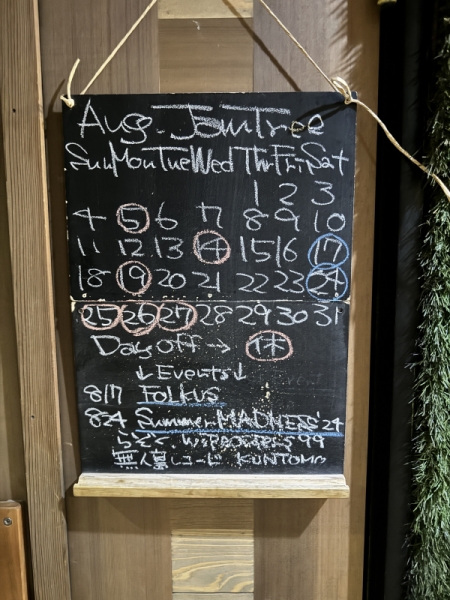 Aug. JamTree
Sun Mon Tue Wed Thr Fri Sat
1 2 3
4 5 6 7 8 9 10
11 12 13 14 15 16 17
18 19 20 21 22 23 24
25 26 27 28 29 30 31
Day off → 休
↓ Events ↓
8/17 FOLKUS
8.24 Summer MADNESS '24
無人島レコード